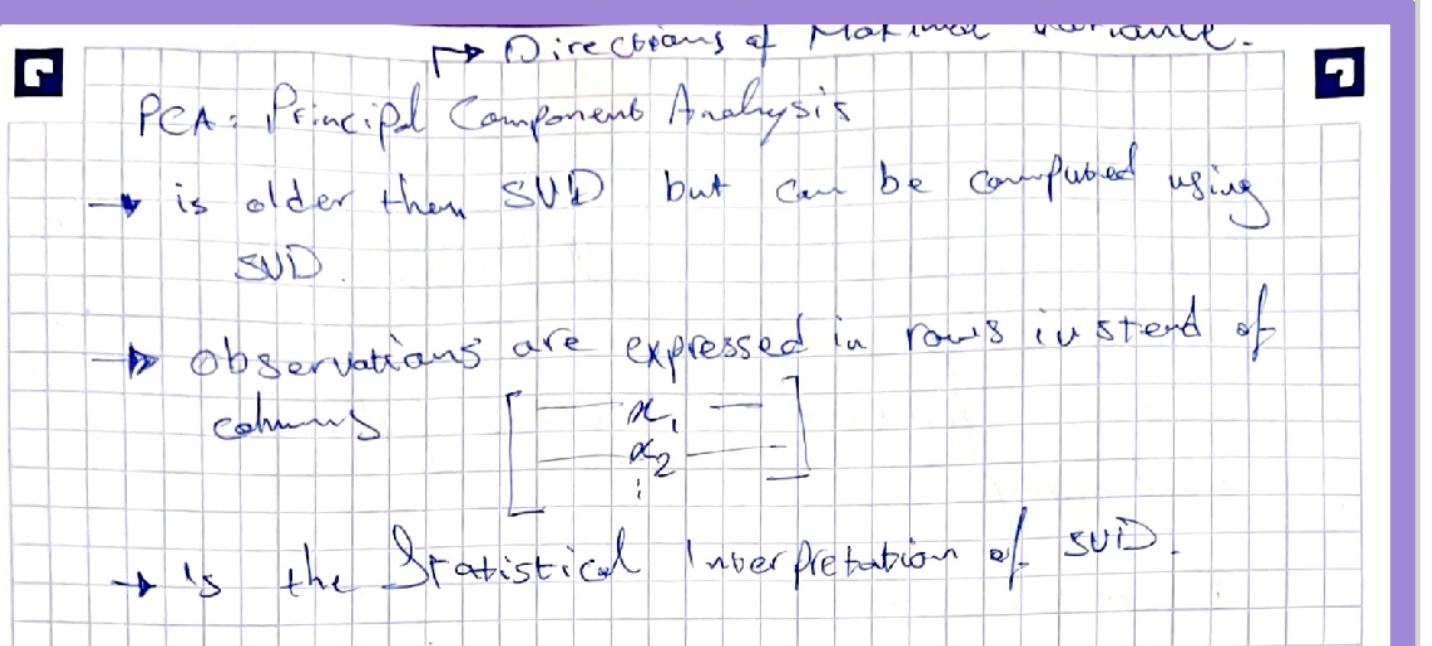 → Directions of Maximal variance.
PCA: Principal Component Analysis
→ is older then SVD but can be computed using
SVD.
→ observations are expressed in rows instead of
columns [ — x₁ —
— x₂ — ]
⋮
→ is the Statistical Interpretation of SVD.